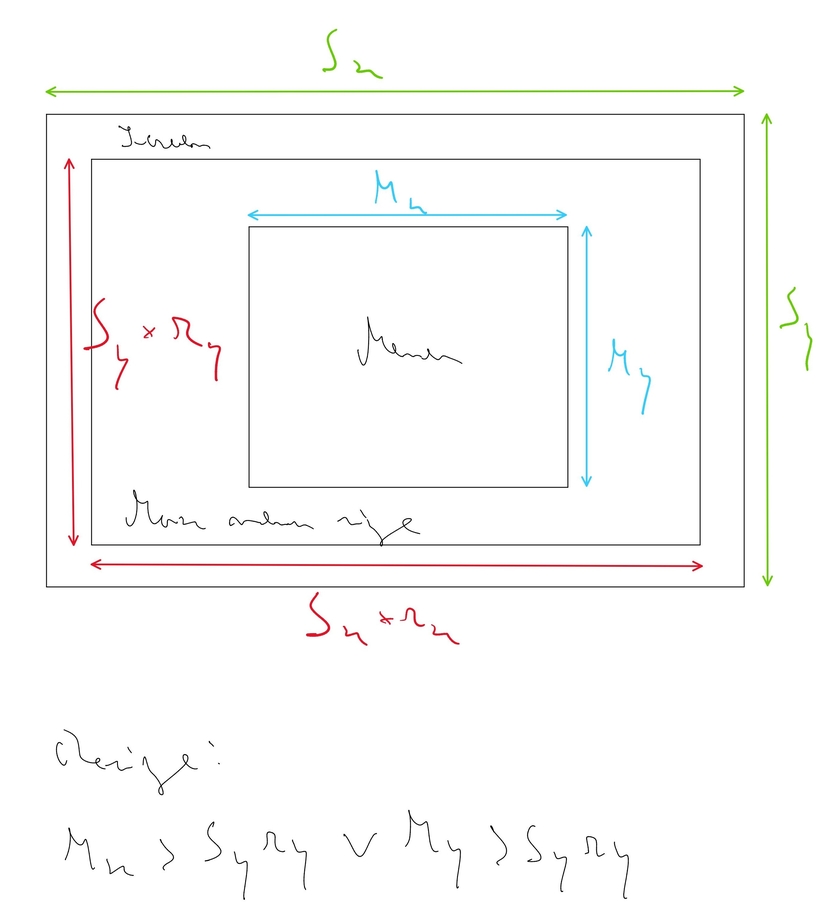 S_x
Screen
M_x
S_y × r_y
Menu
M_y
S_y
Max menu size
S_x × r_x
Resize:
M_x > S_y r_y ∨ M_y > S_y r_y